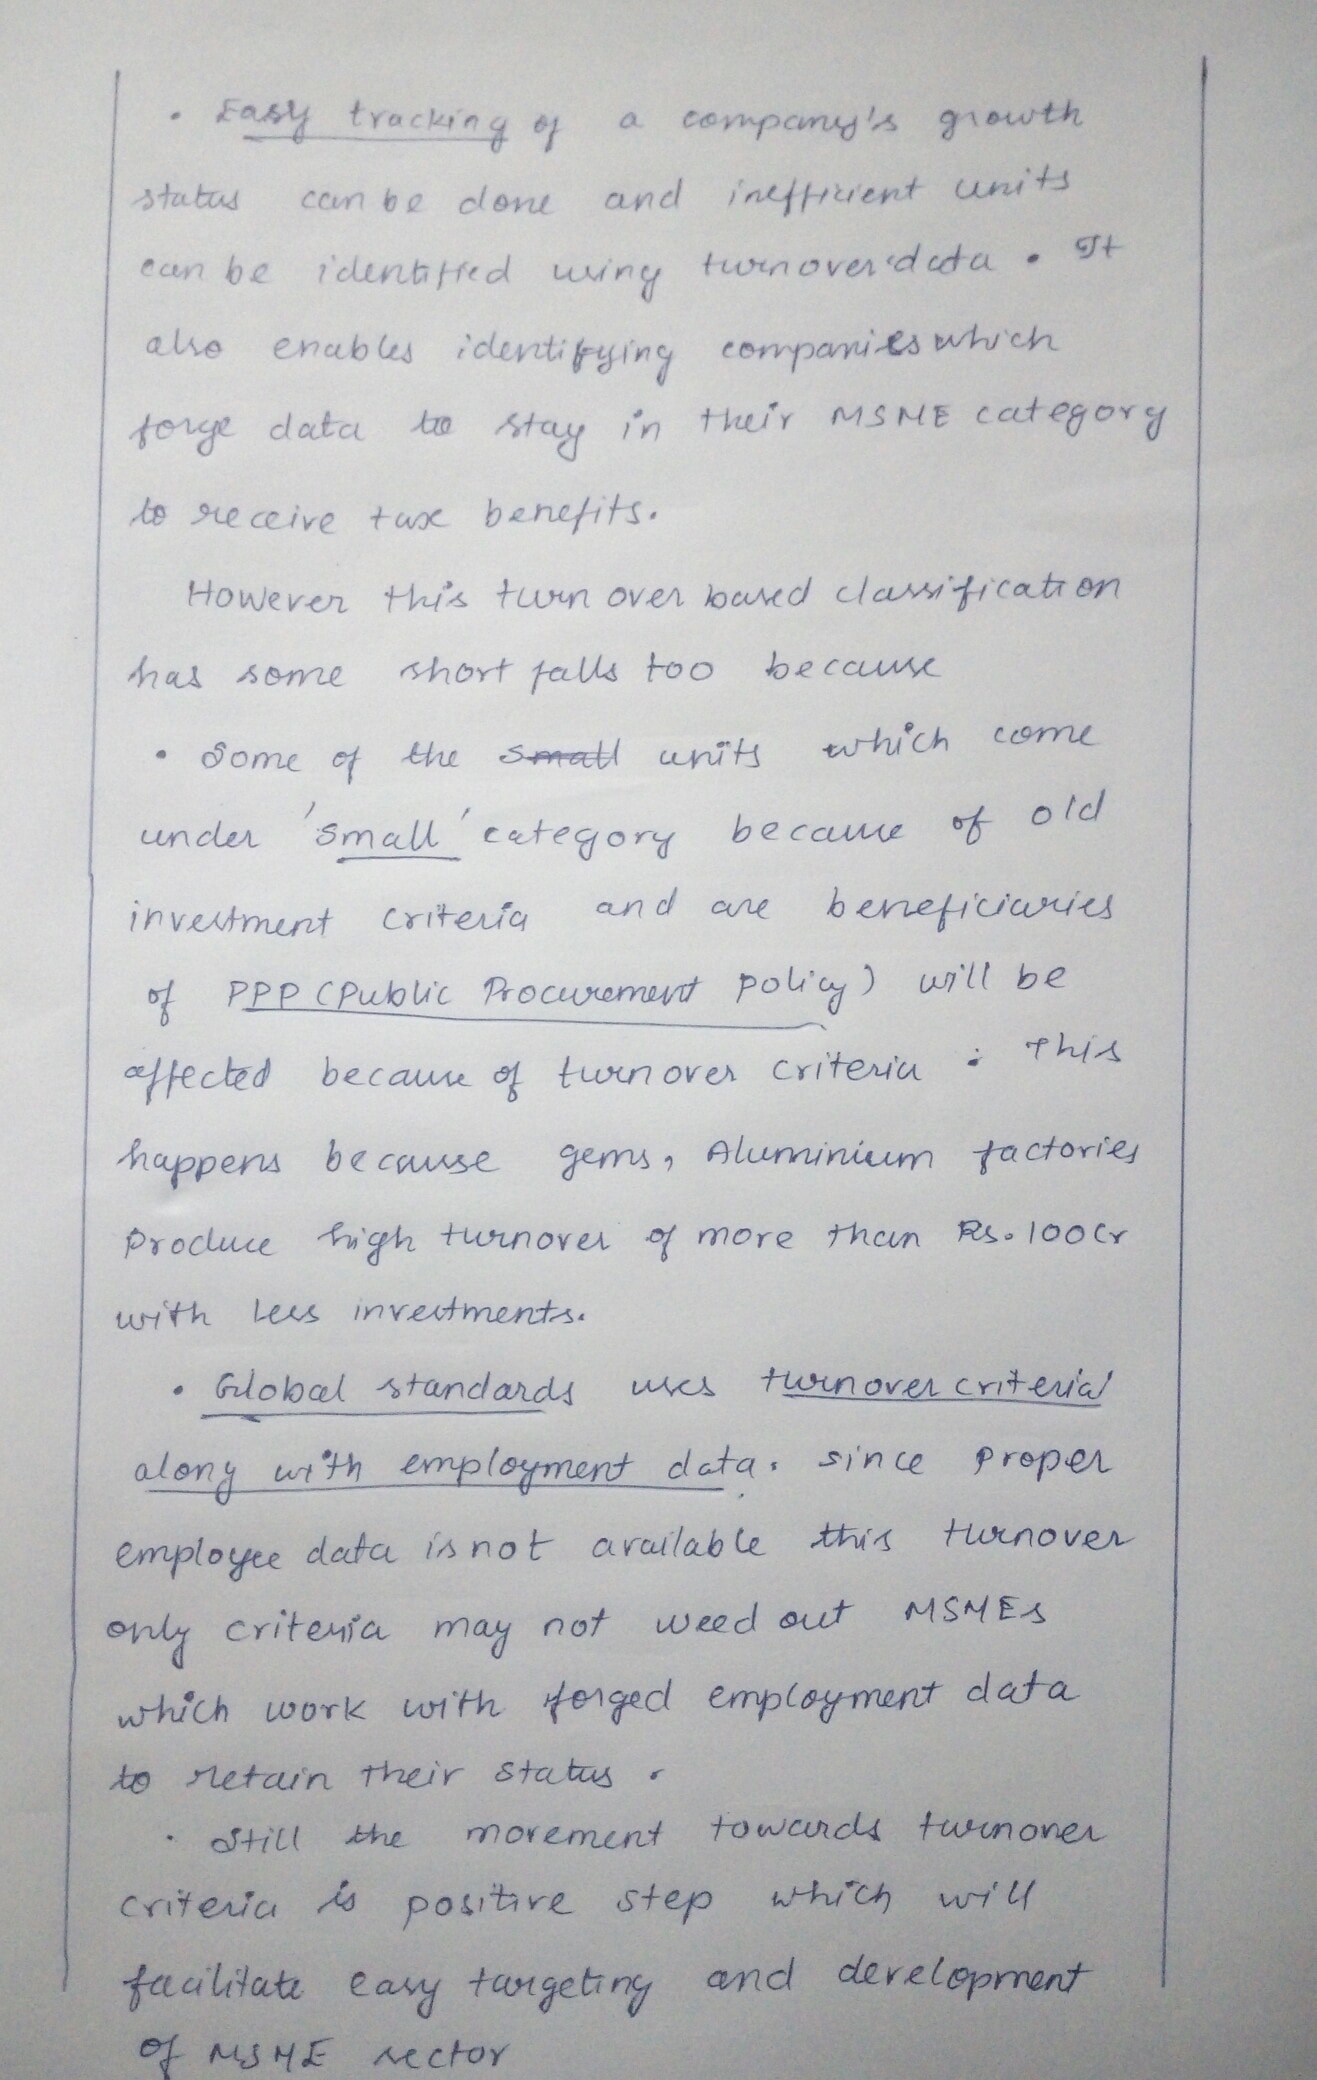 • Easy tracking of a company's growth
status can be done and inefficient units
can be identified using turnover data. It
also enables identifying companies which
forge data to stay in their MSME category
to receive tax benefits.
However this turn over based classification
has some short falls too because
• Some of the small units which come
under 'small' category because of old
investment criteria and are beneficiaries
of PPP (Public Procurement policy) will be
affected because of turnover criteria. This
happens because gems, Aluminium factories
produce high turnover of more than Rs. 100Cr
with less investments.
• Global standards uses turnover criteria
along with employment data. since proper
employee data is not available this turnover
only criteria may not weed out MSMEs
which work with forged employment data
to retain their status.
• Still the movement towards turnover
criteria is positive step which will
facilitate easy targeting and development
of MSME sector